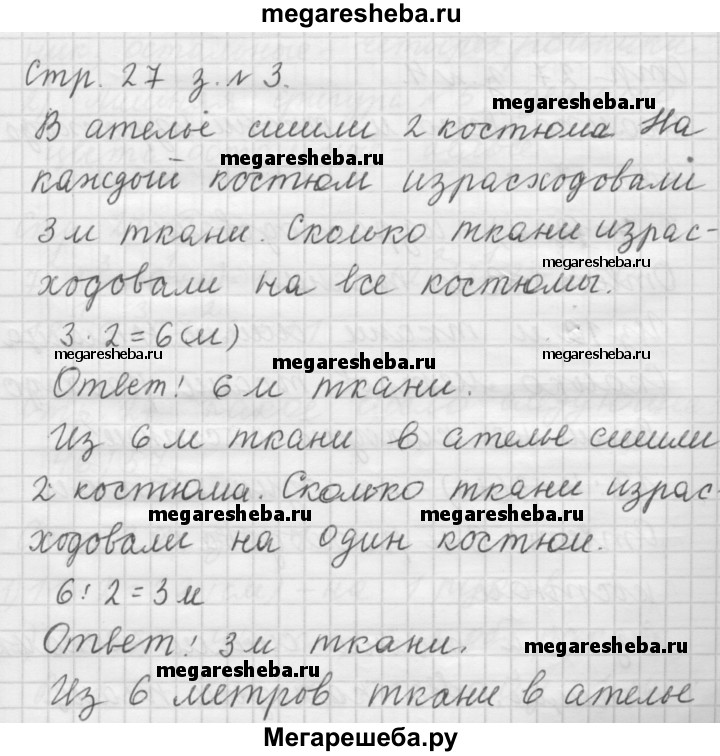 megaresheba.ru
Стр. 27 з. № 3.
megaresheba.ru
В ателье сшили 2 костюма На
megaresheba.ru
каждый костюм израсходовали
3м ткани. Сколько ткани израс-
megaresheba.ru
ходовали на все костюмы.
3 · 2 = 6(м)
megaresheba.ru megaresheba.ru megaresheba.ru
Ответ: 6 м ткани.
Из 6 м ткани в ателье сшили
2 костюма. Сколько ткани израс-
megaresheba.ru megaresheba.ru
ходовали на один костюм.
6 : 2 = 3 м
Ответ: 3м ткани.
megaresheba.ru megaresheba.ru
Из 6 метров ткани в ателье
Мегарешеба.ру